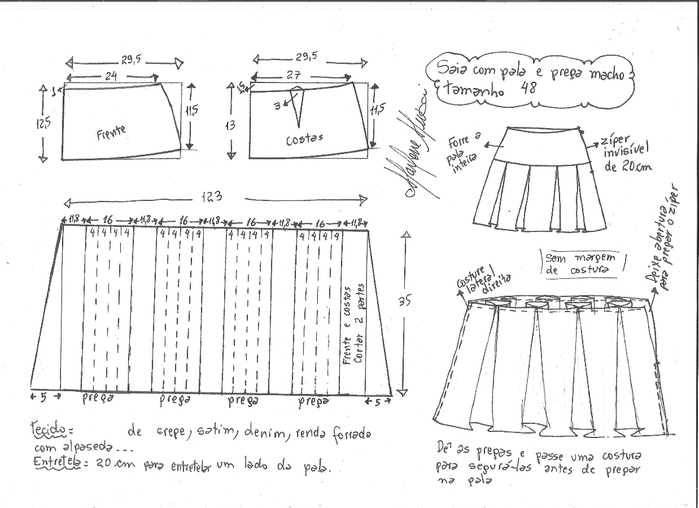 29,5
24
1
12,5
11,5
Frente
29,5
27
1,5
3
13
11,5
Costas
Saia com pala e prega macho
tamanho 48
Forre a
pala
inteira
zíper
invisível
de 20cm
123
11,8 16 11,8 16 11,8 16 11,8 16 11,8
4 4 4 4 4 4 4 4 4 4 4 4 4 4 4 4
Frente e costas
Cortar 2 partes
35
5 prega prega prega prega 5
Sem margem
de costura
Costure
lateral
direita
Deixe abertura
para pregar o zíper
Tecido: de crepe, satim, denim, renda forrada
com alpaseda...
Entretela: 20 cm para entretelar um lado da pala.
Dê as pregas e passe uma costura
para segurá-las antes de pregar
na pala